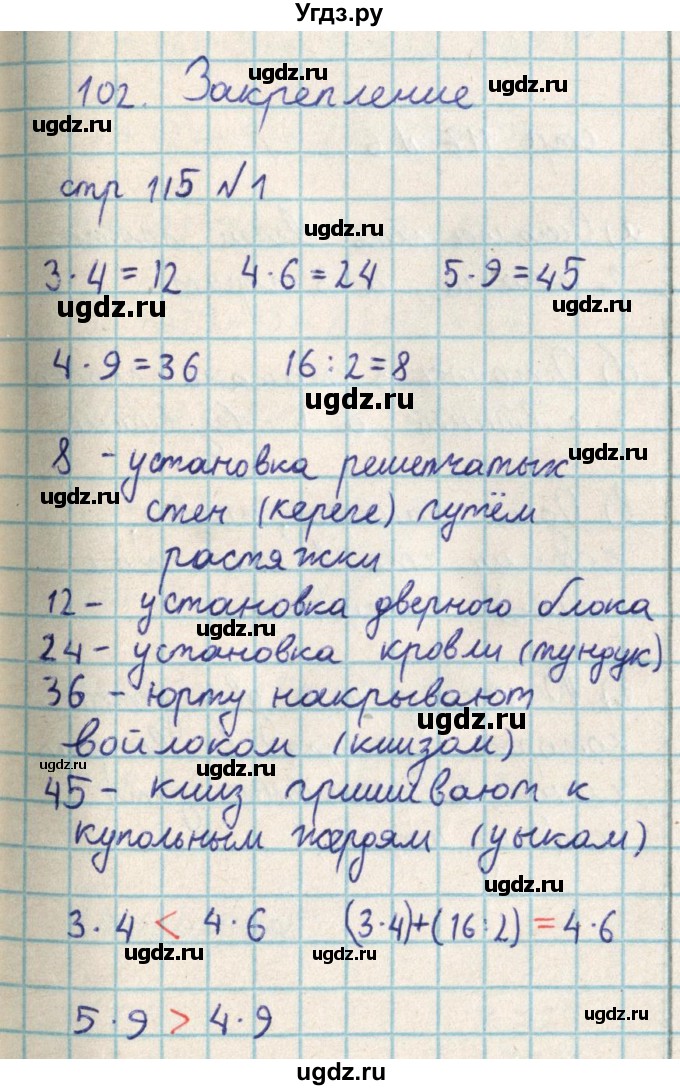 Угдз.ру
102. Закрепление
ugdz.ru ugdz.ru
ugdz.ru
стр 115 №1
ugdz.ru
3·4=12 4·6=24 5·9=45
ugdz.ru ugdz.ru
4·9=36 16:2=8
ugdz.ru
8 - установка решетчатых
ugdz.ru ugdz.ru
стен (кереге) путём
растяжки
12 - установка дверного блока
ugdz.ru
24 - установка кровли (тундук)
36 - юрту накрывают
ugdz.ru
войлоком (киизом)
ugdz.ru ugdz.ru
45 - кииз пришивают к
купольным жердям (уыкам)
ugdz.ru
3·4 < 4·6 (3·4)+(16:2) = 4·6
ugdz.ru
5·9 > 4·9
ugdz.ru
ugdz.ru